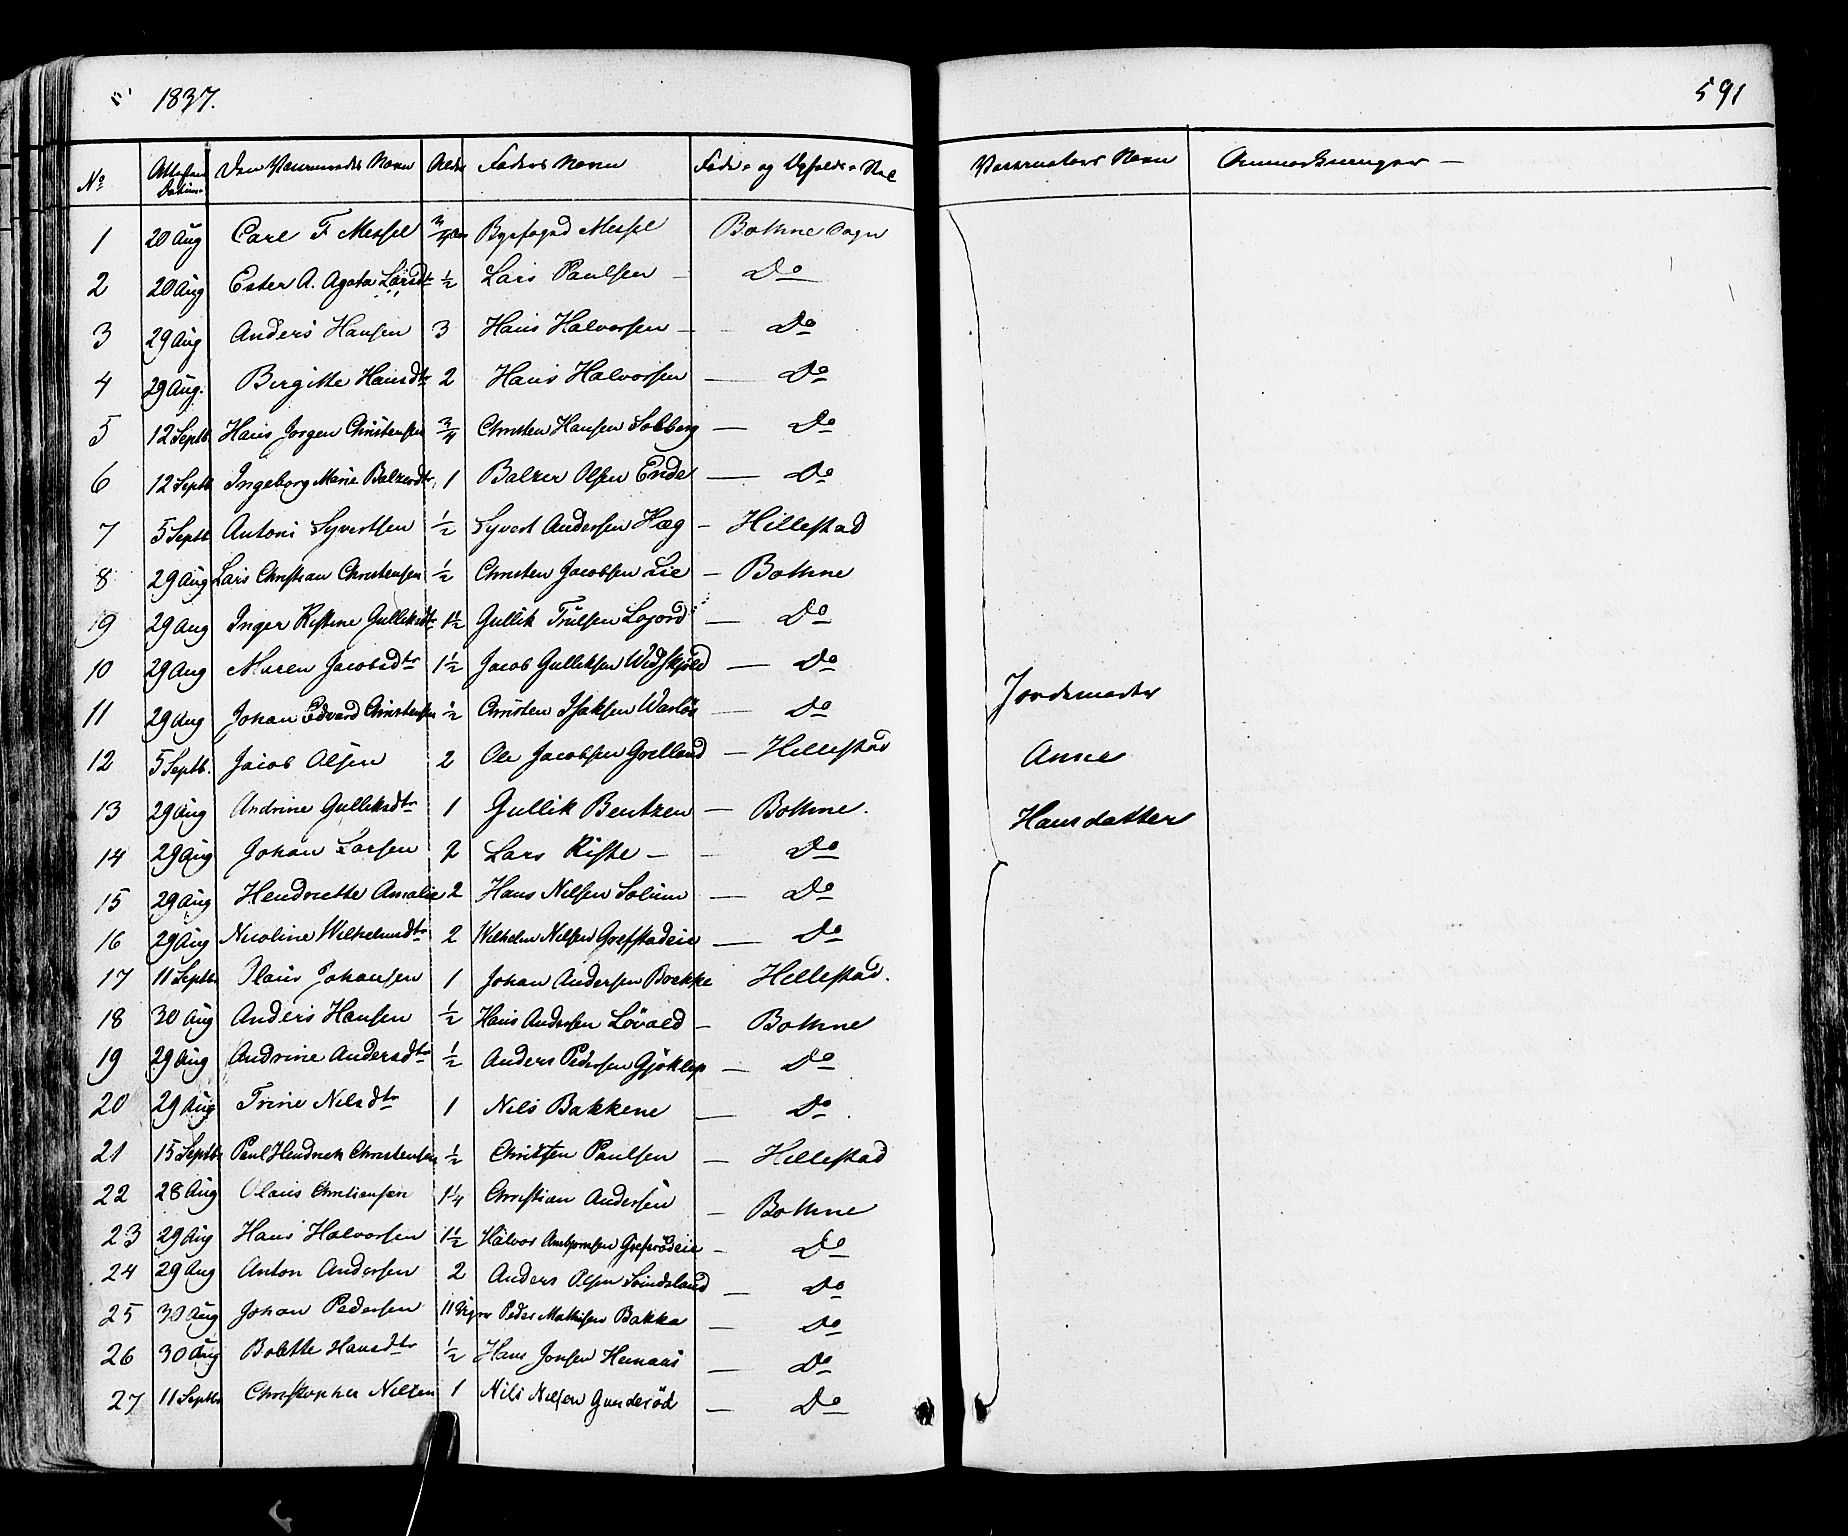 1837.
591
No Attesten Datum Den Vaccineredes Navn Alder Faders Navn Føde- og Opholds-Sted Vaccinators Navn Anmærkninger —
1 20 Aug Carl F Messel 3/4 Aar Byefoged Messel Bothne Sogn
2 20 Aug Ester A. Agata Larsdtr 1/2 Lars Paulsen — Do
3 29 Aug Anders Hansen 3 Hans Halvorsen — Do
4 29 Aug. Birgitte Hansdtr 2 Hans Halvorsen — Do
5 12 Septb Hans Jorgen Christensen 3/4 Christen Hansen Solberg — Do
6 12 Septb Ingeborg Marie Balzersdtr 1 Balzer Olsen Ende — Do
7 5 Septb Antoni Syvertsen 1/2 Syvert Andersen Hæg — Hillestad
8 29 Aug Lars Christian Christensen 1/2 Christen Jacobsen Lie — Bothne
9 29 Aug Inger Kistine Gulliksdtr 1 1/2 Gullik Trulsen — Do
10 29 Aug Maren Jacobsdtr 1 1/2 Jacob Gulliksen Widskjöld — Do
11 29 Aug Johan Edvard Christensen 1/2 Christen Isaksen Warlös — Do
12 5 Septb. Jacob Olsen 2 Ole Jacobsen Grelland — Hillestad
13 29 Aug Andrine Gulliksdtr 1 Gullik Bentzen — Bothne.
14 29 Aug Johan Larsen 2 Lars Riste — Do
15 29 Aug Hendrette Amalie 2 Hans Nilsen Solum — Do
16 29 Aug Nicoline Wilhelmsdtr 2 Wilhelm Nilsen Grefstadeie — Do
17 11 Septb. Olaus Johansen 1 Johan Andersen Brekke Hillestad.
18 30 Aug Anders Hansen 1/2 Hans Andersen Lövald — Bothne
19 29 Aug Andrine Andersdtr 1/2 Anders Pedersen Gjöklep — Do
20 29 Aug Trine Nilsdtr 1 Nils Bakkene — Do.
21 15 Septb. Paul Hendrich Christensen 1/2 Christen Paulsen — Hillestad
22 28 Aug Olaus Christiansen 1 1/4 Christian Andersen — Bothne
23 29 Aug Hans Halvorsen 1 1/2 Halvor Ambjornsen Grefsrödeie — Do
24 29 Aug Anton Andersen 2 Anders Olsen Svindsland — Do
25 30 Aug Johan Pedersen 11 Uger Peder Mathisen Bakka — Do
26 30 Aug Bolette Hansdtr 1/2 Hans Jonsen — Do
27 11 Septb. Christopher Nilsen 1 Nils Nilsen Gunderöd — Do
Jordemoder
Anne
Hansdatter